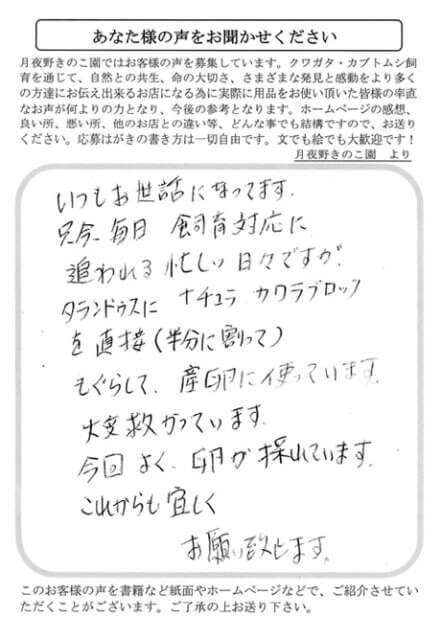 あなた様の声をお聞かせください
月夜野きのこ園ではお客様の声を募集しています。クワガタ・カブトムシ飼
育を通じて、自然との共生、命の大切さ、さまざまな発見と感動をより多く
の方達にお伝え出来るお店になる為に実際に用品をお使い頂いた皆様の率直
なお声が何よりの力となり、今後の参考となります。ホームページの感想、
良い所、悪い所、他のお店との違い等、どんな事でも結構ですので、お送り
ください。応募はがきの書き方は一切自由です。文でも絵でも大歓迎です！
月夜野きのこ園　より
いつもお世話になってます。
只今、毎日 飼育対応に
追われる忙しい日々ですが、
タランドゥスに ナチュラ カワラブロック
を直接（半分に割って）
もぐらして、産卵に使っています。
大変救かっています。
今回 よく、卵が採れています。
これからも宜しく
お願い致します。
このお客様の声を書籍など紙面やホームページなどで、ご紹介させてい
ただくことがございます。ご了承の上お送り下さい。